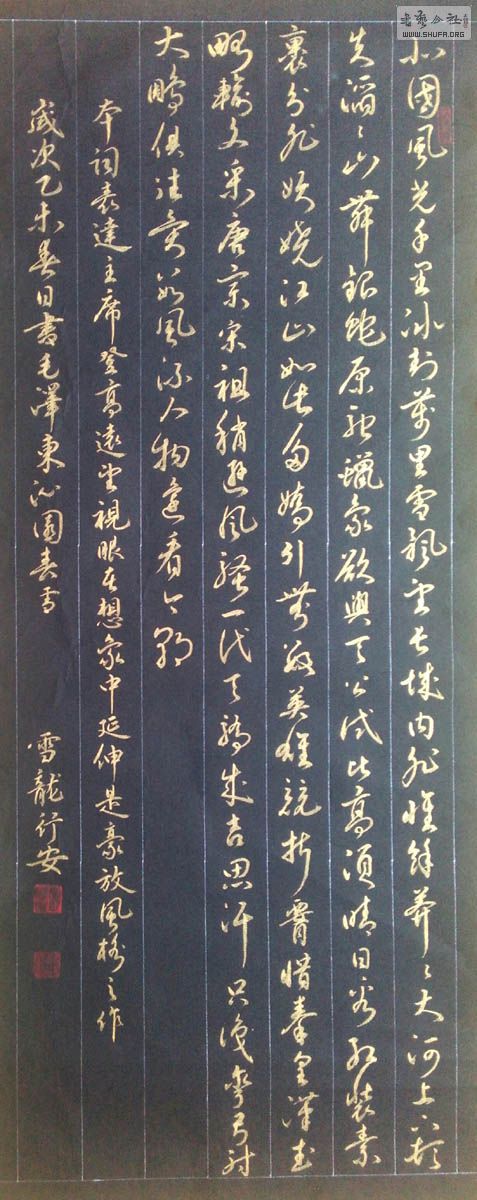 北國風光千里冰封萬里雪飄望長城内外惟餘莽〻大河上下頓
失滔〻山舞銀蛇原馳蠟象欲與天公試比高須晴日看紅裝素
裹分外妖嬈江山如此多嬌引無數英雄競折腰惜秦皇漢武
略輸文采唐宗宋祖稍遜風騷一代天驕成吉思汗只識彎弓射
大鵰俱往矣數風流人物還看今朝
本詞表達主席登高遠望視眼在想象中延伸是豪放風格之作
歲次乙未春日書毛澤東沁園春雪 雪龍行安
書藝公社
WWW.SHUFA.ORG